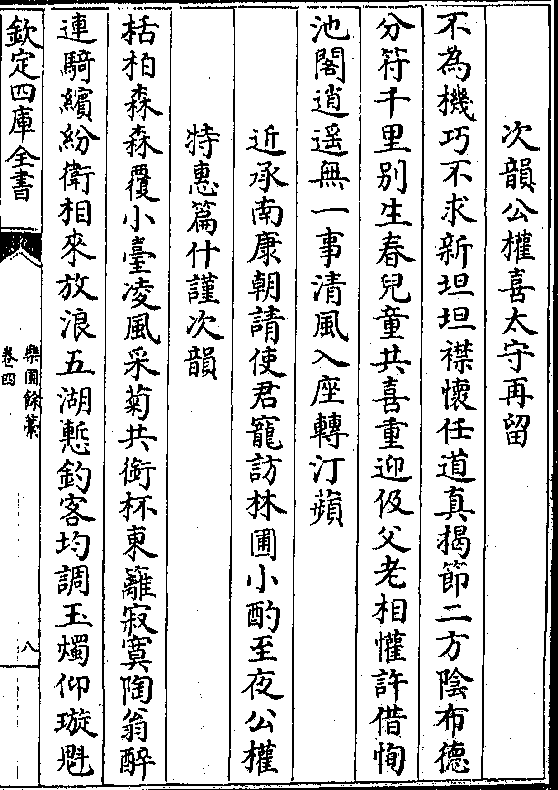 次韻公權喜太守再留
不為機巧不求新坦坦襟懷任道真揭節二方陰布德
分符千里别生春兒童共喜重迎伋父老相懽許借恂
池閣逍遥無一事清風入座轉汀蘋
近承南康朝請使君寵訪林圃小酌至夜公權
特惠篇什謹次韻
栝柏森森覆小臺凌風采菊共銜杯東籬寂寞陶翁醉
連騎繽紛衛相來放浪五湖慙釣客均調玉燭仰璇魁
欽定四庫全書
樂圃餘藁
卷四
八